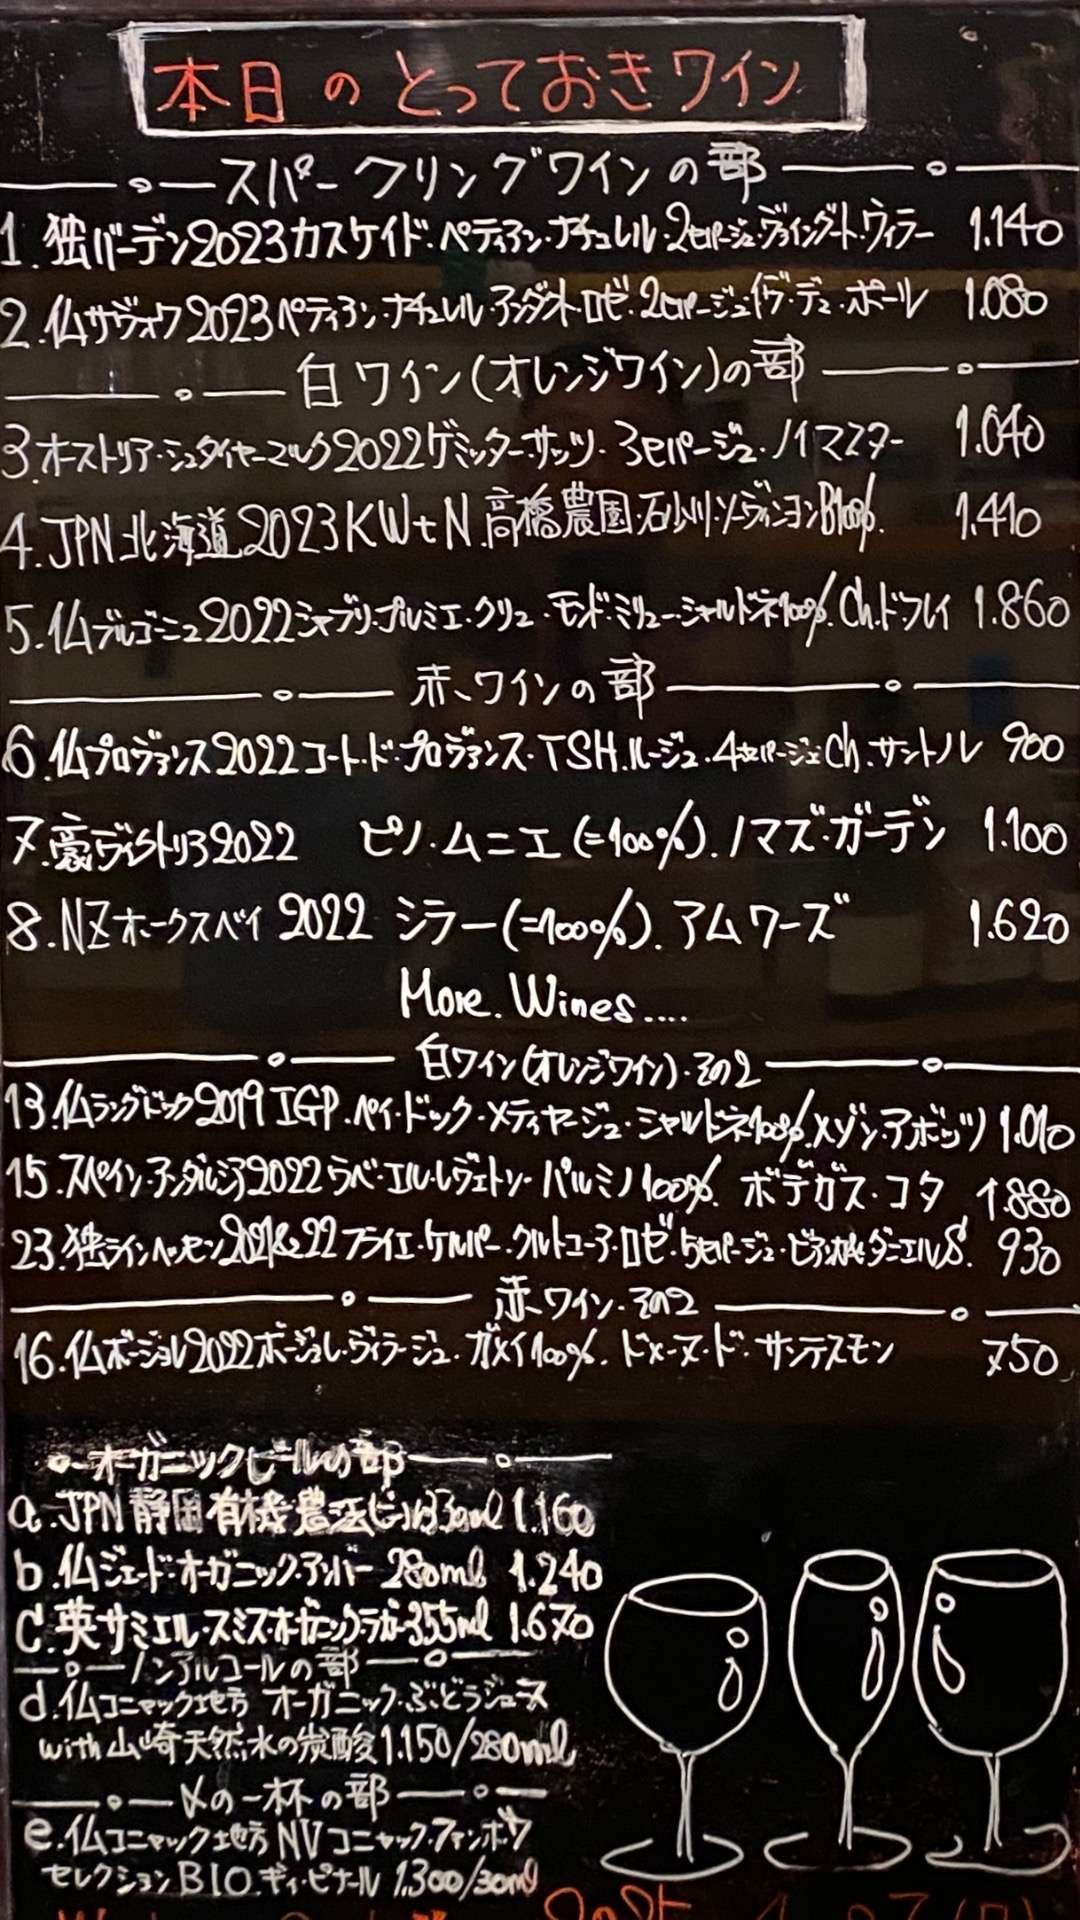 本日のとっておきワイン
スパークリングワインの部
1.独バーデン2023カスケイド・ペティアン・ナチュレル・2セパージュ・ヴァイングート・ヴィラー 1.140
2.仏サヴォワ2023ペティアン・ナチュレル・アンダクト・ロゼ・2セパージュ・イヴ・デュ・ポール 1.080
白ワイン(オレンジワイン)の部
3.オーストリア・シュタイヤーマルク2022ゲミッターサッツ・3セパージュ・ノイマイスター 1.040
4.JPN北海道2023KW+N.高橋農園・石砂川・ソーヴィニヨンB100%. 1.410
5.仏ブルゴーニュ2022シャブリ・プルミエ・クリュ・モンド・ミリュー・シャルドネ100%.Ch.ド・フレイ 1.860
赤ワインの部
6.仏プロヴァンス2022コート・ド・プロヴァンス・TSH.ルージュ・4セパージュCh.サントル 900
7.豪ヴィクトリア2022 ピノ・ムニエ(=100%).ノマズ・ガーデン 1.100
8.NZホークスベイ 2022 シラー(=100%).アムワーズ 1.620
More.Wines....
白ワイン(オレンジワイン)・その2
13.仏ラングドック2019 IGP.ペイ・ドック・メティヤージュ・シャルドネ100%.メゾン・アボッツ 1.010
15.スペイン・アンダルシア2022ラベ・エル・レヴェトリー パルミノ100%. ボデガス・コタ 1.880
23.独ラインヘッセン2021&22フライエ・ケルパー・クルトューア・ロゼ・5セパージュ・ビアンカ&ダニエルS. 930
赤ワイン・その2
16.仏ボージョレ2022ボージョレ・ヴィラージュ・ガメイ100%.ドメーヌ・ド・サンテスモン 750
オーガニックビールの部
a.JPN静岡有機農法ビール33ml 1.160
b.仏ジェード・オーガニック・アンバー280ml 1.240
c.英サミエル・スミス・オーガニック・ラガー355ml 1.670
ノンアルコールの部
d.仏コニャック地方 オーガニック・ぶどうジュース
with山崎天然水の炭酸1.150/280ml
〆の一杯の部
e.仏コニャック地方NVコニャック・ファンボワ
セレクションBIO.ギィ・ピナール 1.300/30ml